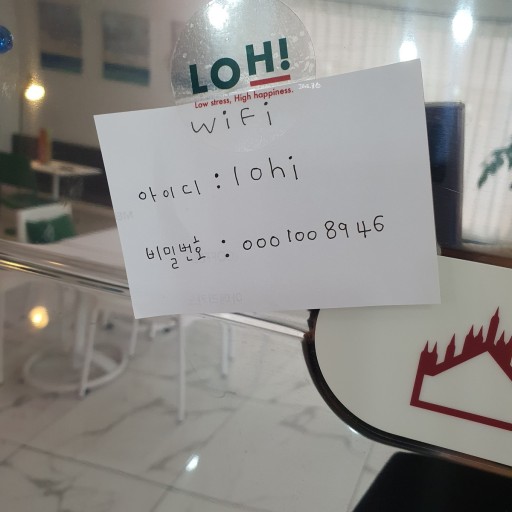 LOH!
Low stress, High happiness.
WiFi
아이디 : lohi
비밀번호 : 0001008946